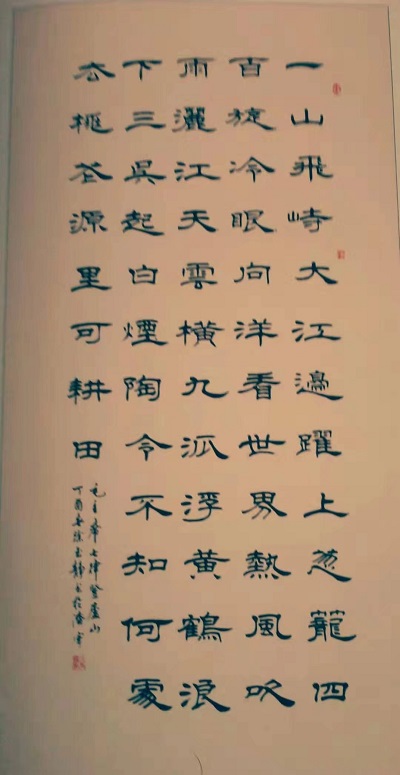 一山飛峙大江邊躍上葱籠四
百旋冷眼向洋看世界熱風吹
雨灑江天雲橫九派浮黃鶴浪
下三吳起白煙陶令不知何處
去桃花源里可耕田
毛主席七律登廬山
丁酉